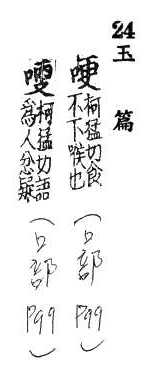 24 玉篇
哽 柯猛切食
不下喉也
(口部 P99)
柯猛切語
為人忿疑
(口部 P99)